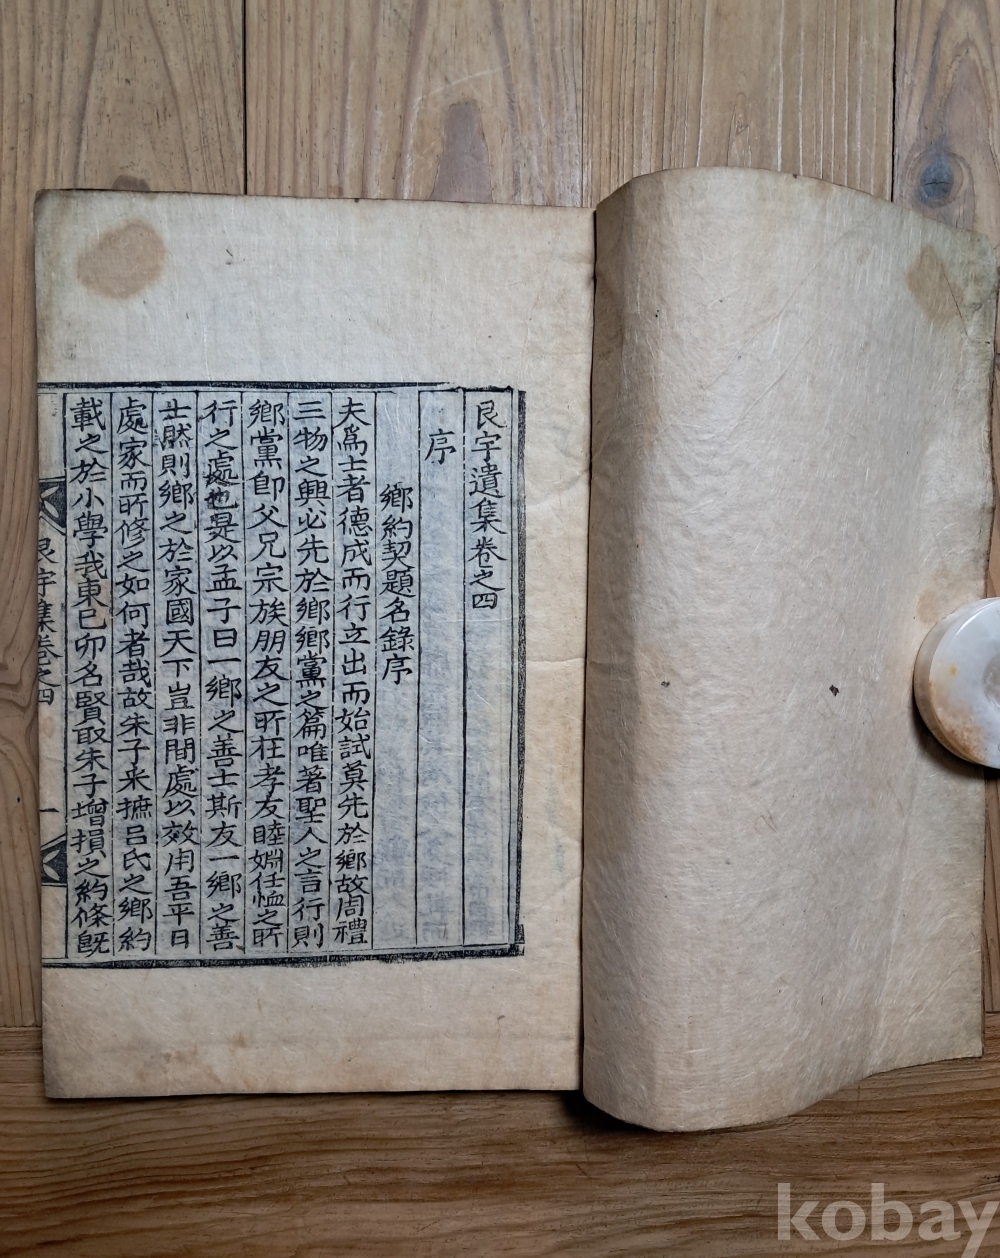 艮宇遺集卷之四
序
鄉約契題名錄序
夫爲士者德成而行立出而始試莫先於鄉故周禮
三物之興必先於鄉鄉黨之篇唯著聖人之言行則
鄉黨卽父兄宗族朋友之所在孝友睦婣任恤之所
行之處也是以孟子曰一鄉之善士斯友一鄉之善
士然則鄉之於家國天下豈非間處以效用吾平日
處家而所修之如何者哉故朱子采摭呂氏之鄉約
載之於小學我東己卯名賢取朱子增損之約條旣
艮宇集卷之四
一
kobay